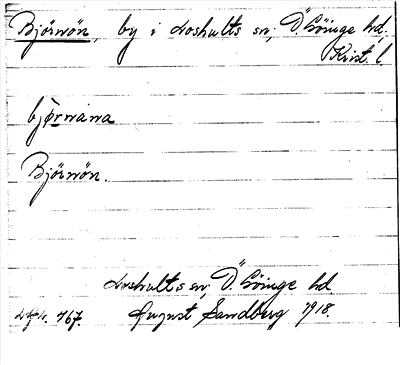 Björnön, by i Loshults sn, Ö. Göinge hd.
Krist. l.
bjö̀rnana
Björnön.
Loshults sn, Ö. Göinge hd
767. August Sandberg 1918.